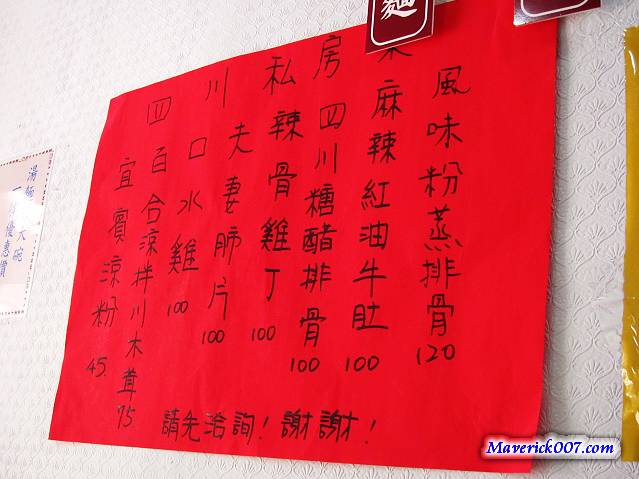 麵
四川私房菜
風味粉蒸排骨120
麻辣紅油牛肚100
四川糖醋排骨100
辣骨雞丁100
夫妻肺片100
口水雞100
百合涼拌川木茸75
宜賓涼粉45.
請先洽詢!謝謝!
湯麵
大碗
優惠價
Maverick007.com